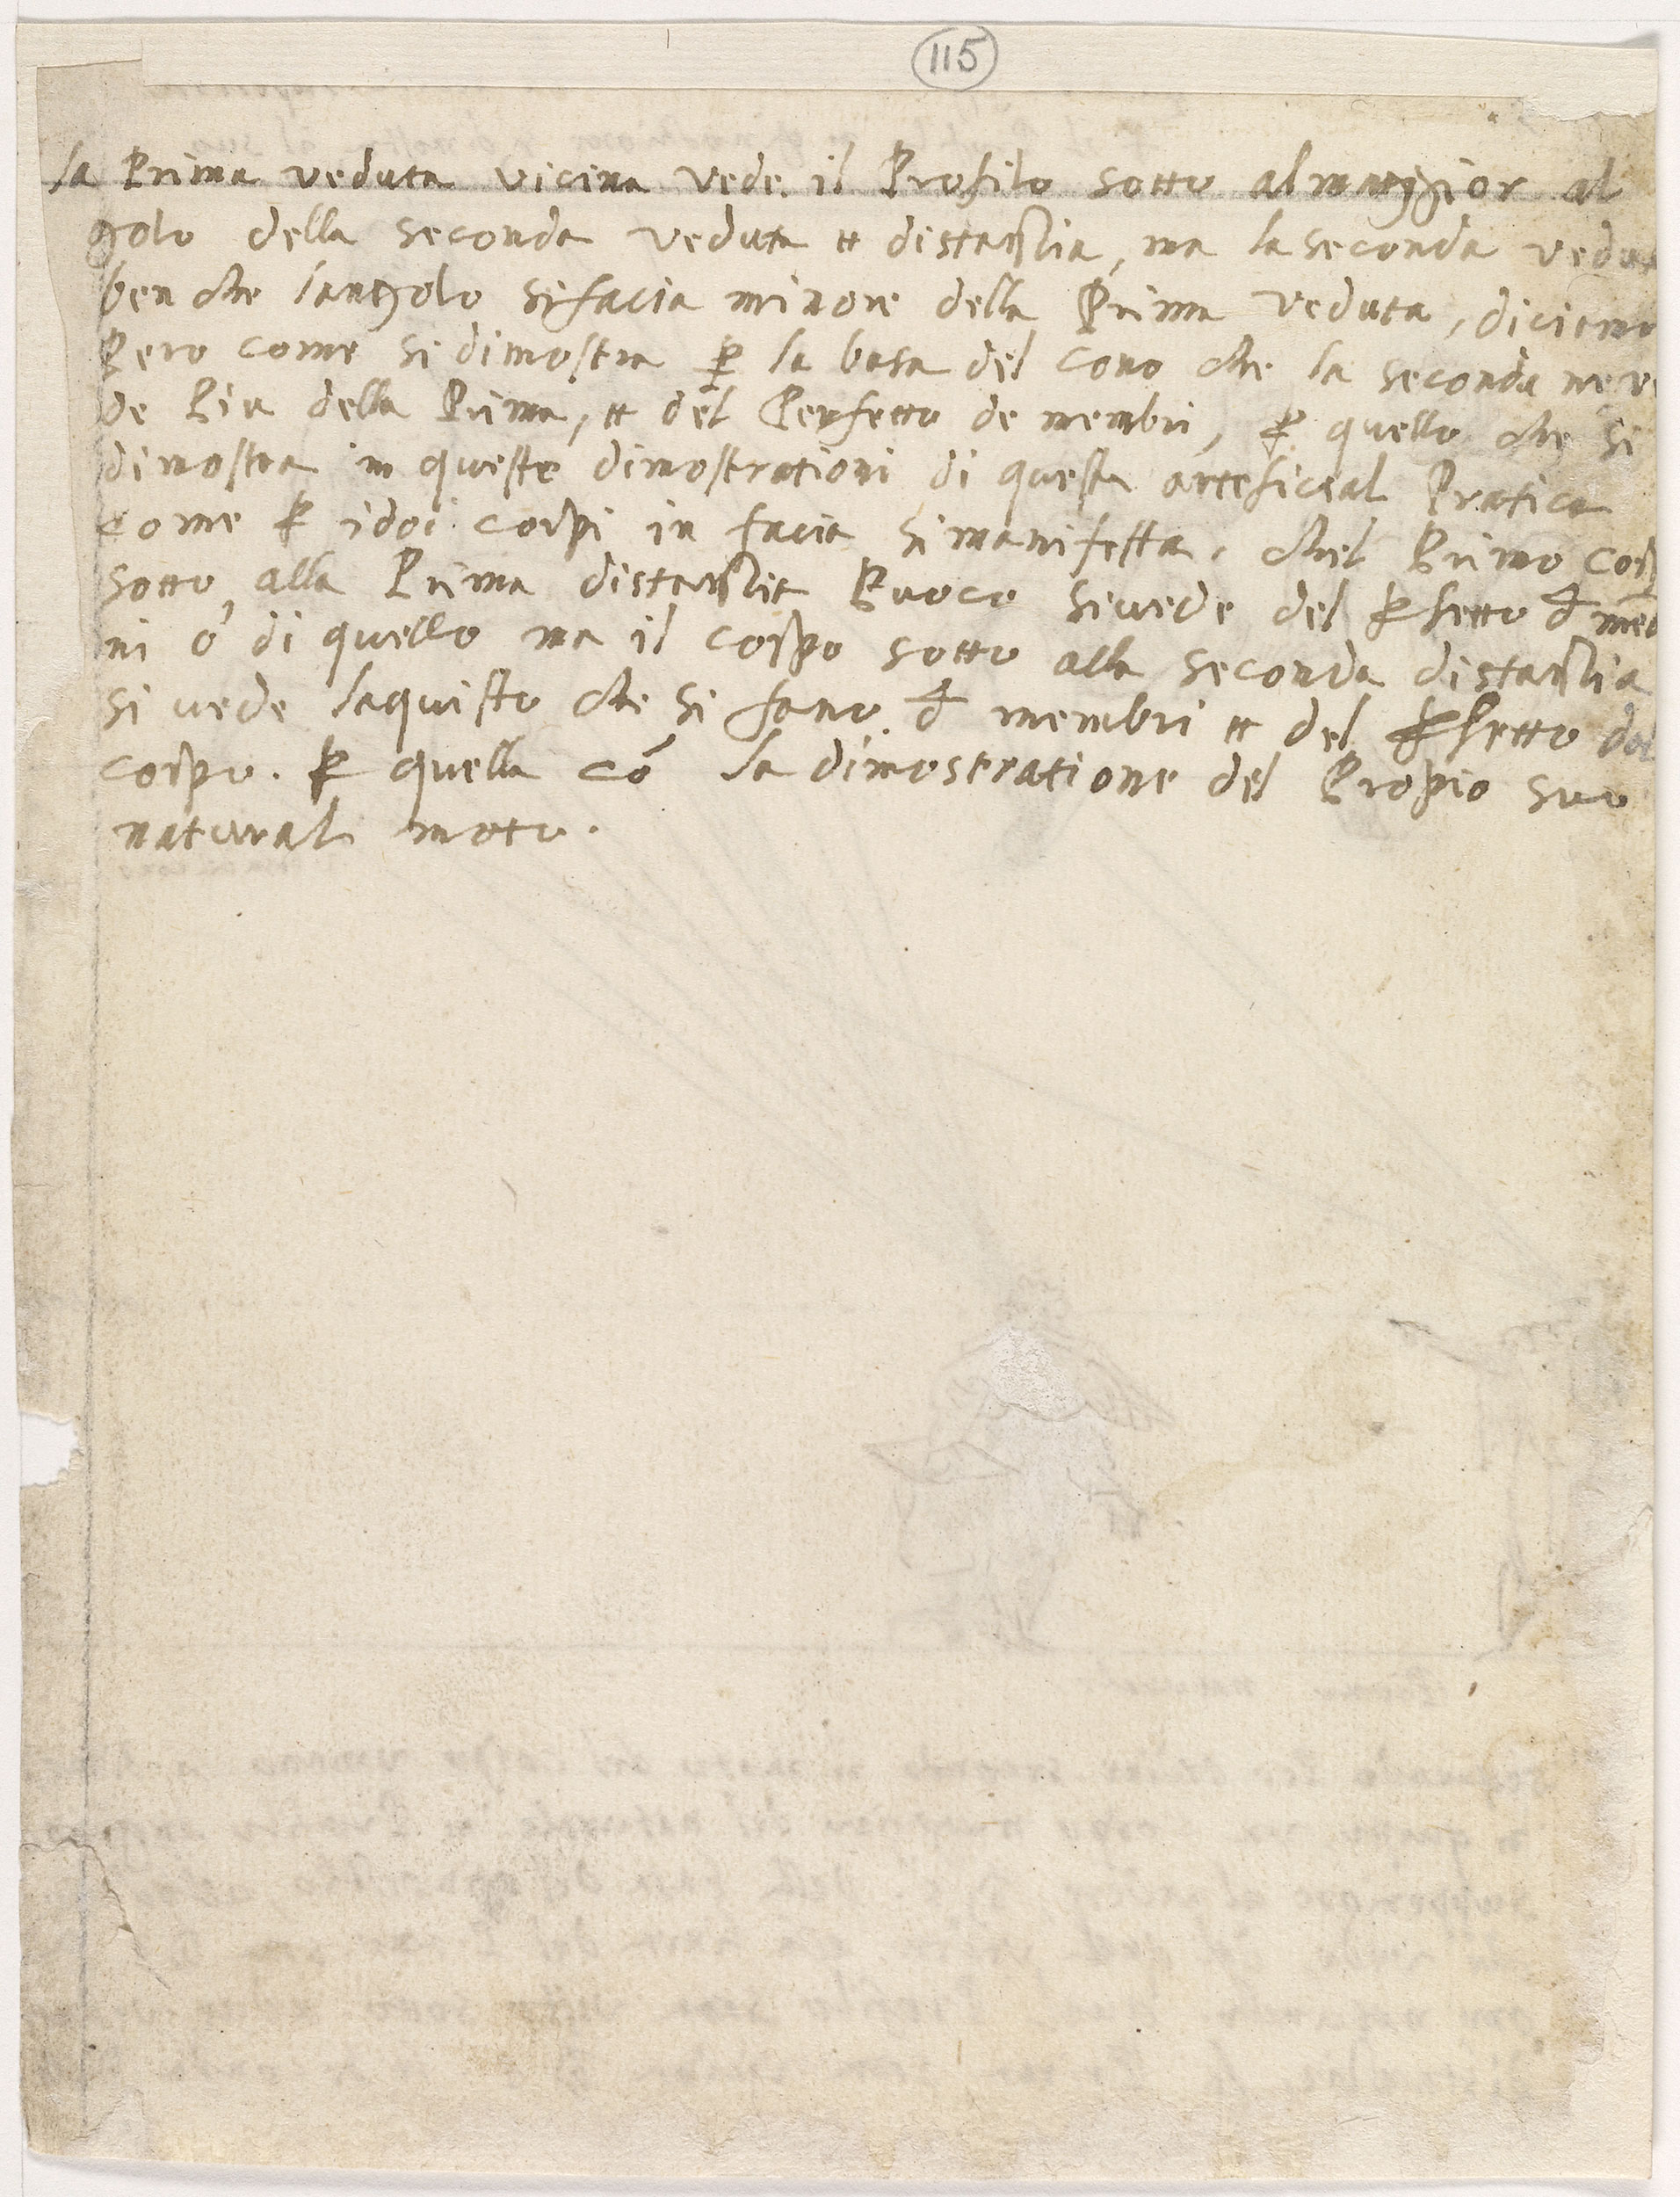 115
la Prima veduta vicina vede il Profilo sotto al maggior al
golo della seconda veduta et distantia, ma la seconda vedut
ben che langolo si facia minore della Prima veduta, diciamo
Pero come si dimostra ꝑ la basa del cono che la seconda ne ve
de Piu della Prima, et del Perfetto de membri, ꝑ quello che si
dimostra in queste dimostrationi di questa arteficial Pratica
come ꝑ i doi corpi in facia si manifesta, chel Primo corp
sotto alla Prima distantia Puoco si vede del ꝑfetto
ni o di quello ma il corpo sotto alla seconda distantia
si vede laquisto che si fano đ membri et del ꝑfetto del
corpo. ꝑ quella cō la dimostratione del Propio suo
natural moto.